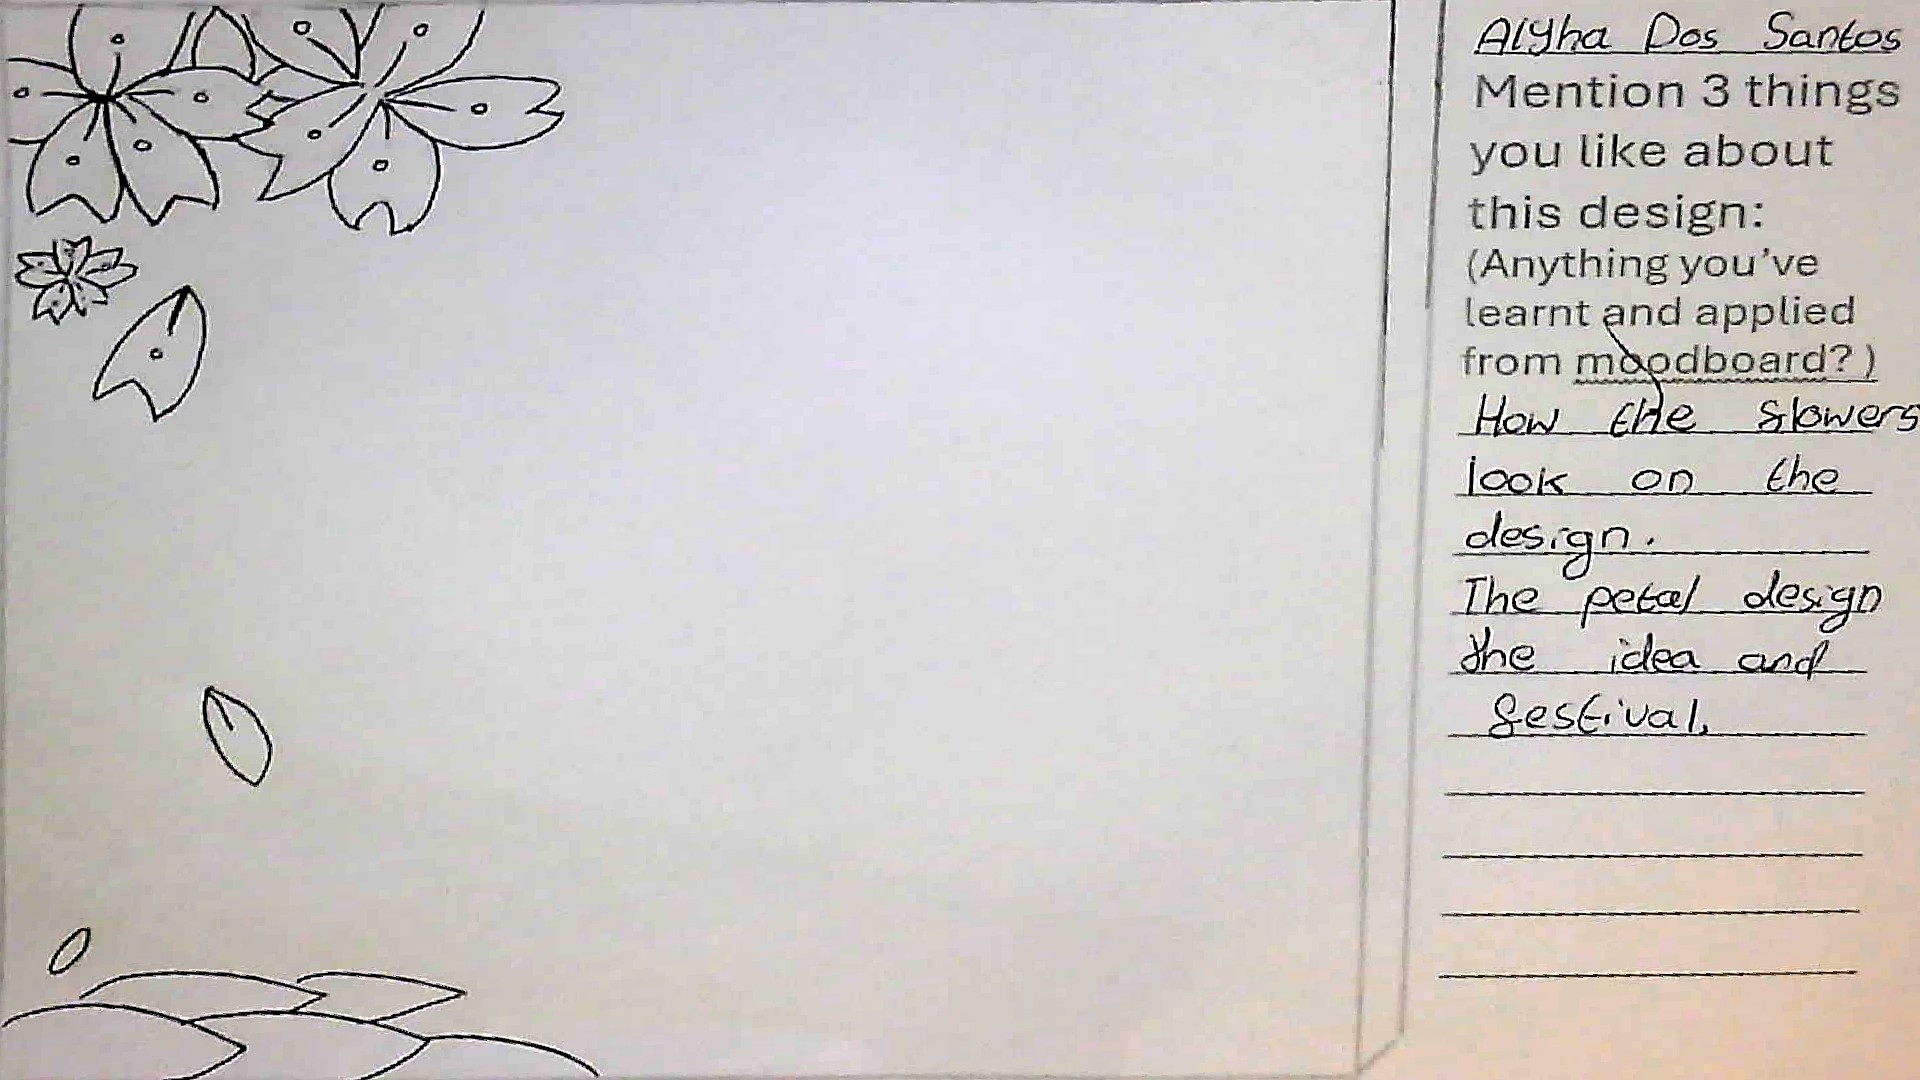 Alyha Dos Santos
Mention 3 things
you like about
this design:
(Anything you've
learnt and applied
from moodboard? )
How the flowers
look on the
design.
The petal design
the idea and
festival.